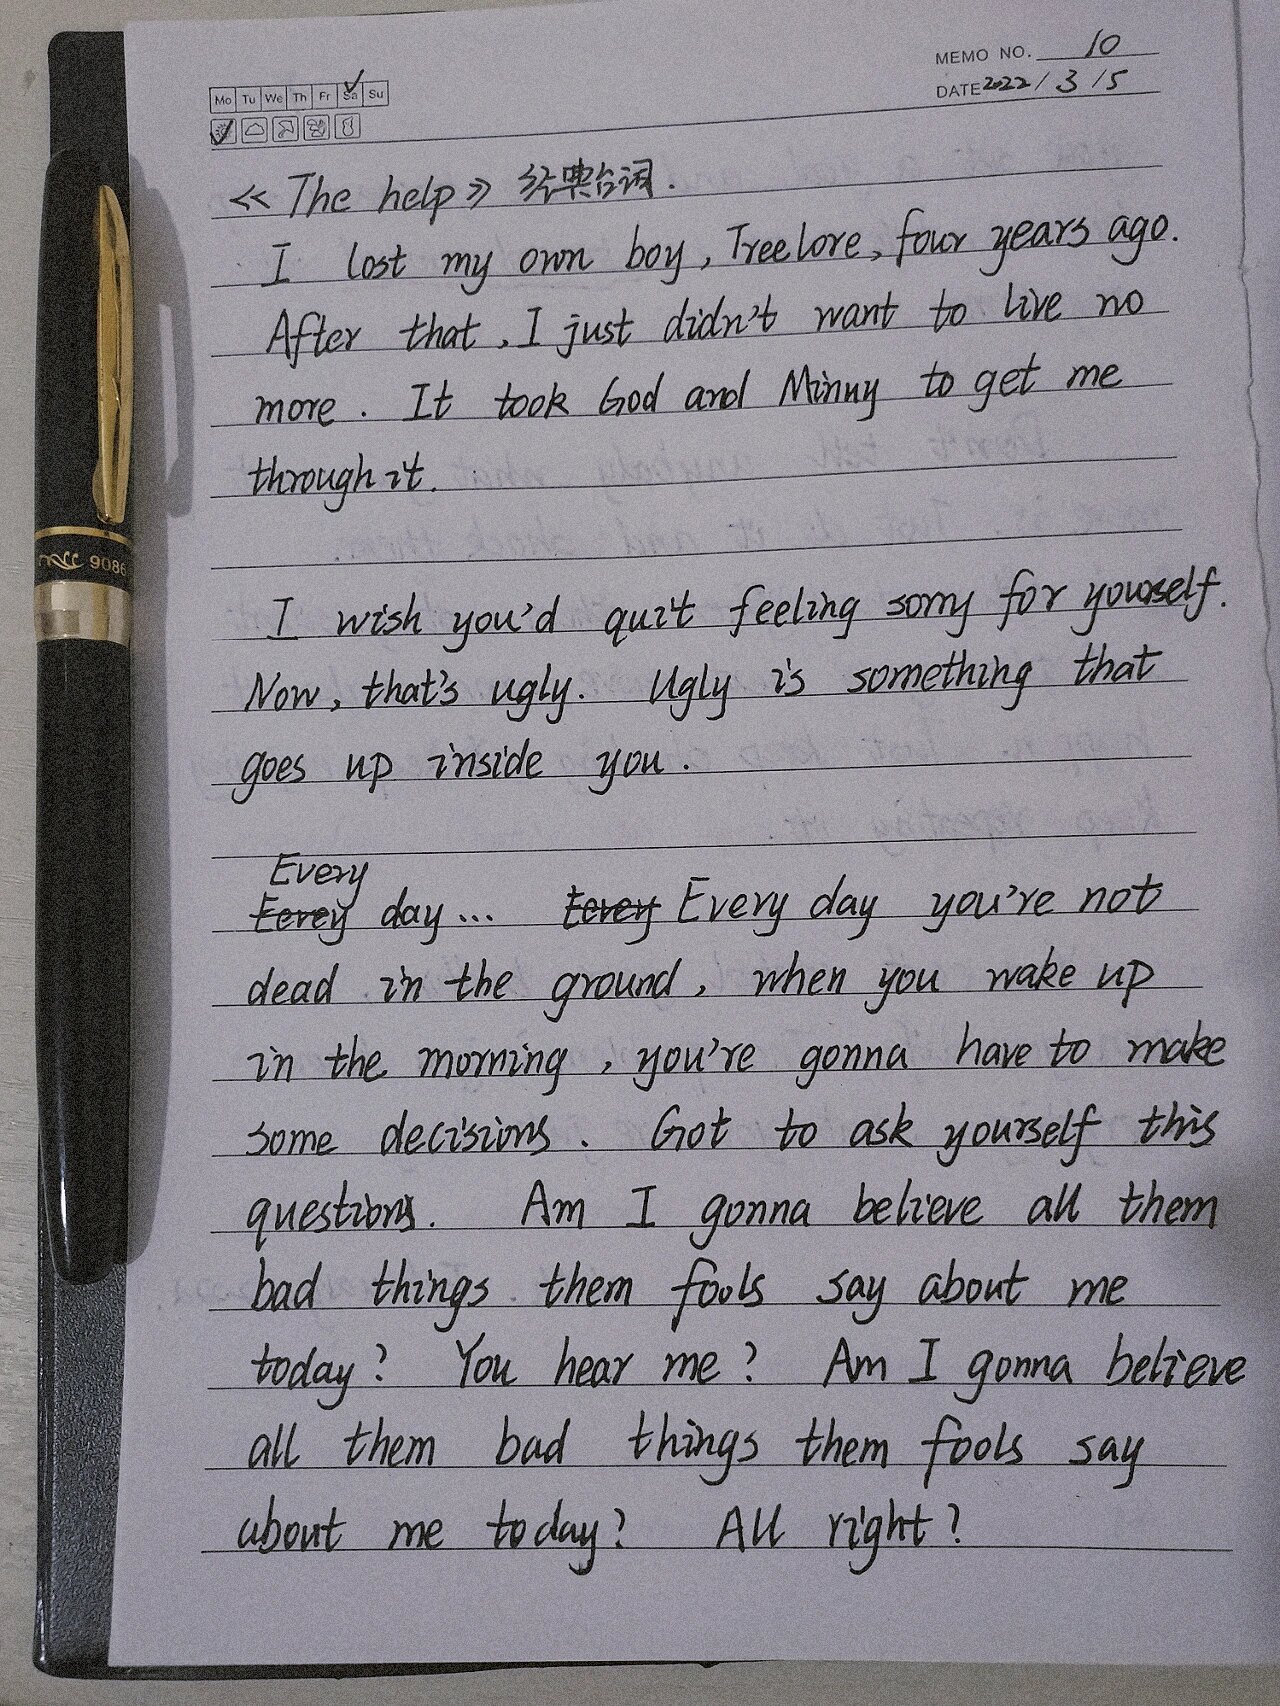 MEMO NO. 10
Mo Tu We Th Fr Sa Su
DATE 2022/3/5
《The help》经典台词.
I lost my own boy, Treelore, four years ago.
After that, I just didn't want to live no
more. It took God and Minny to get me
through it.
I wish you'd quit feeling sorry for yourself.
Now, that's ugly. Ugly is something that
goes up inside you.
Every
Eerey day... Eerey Every day you're not
dead in the ground, when you wake up
in the morning, you're gonna have to make
some decisions. Got to ask yourself this
questions. Am I gonna believe all them
bad things them fools say about me
today? You hear me? Am I gonna believe
all them bad things them fools say
about me today? All right?
9086